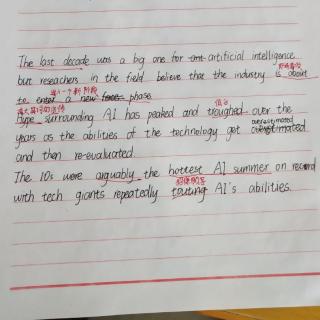 The last decade was a big one for artificial intelligence
but researchers in the field believe that the industry is about
进入一个新阶段
to enter a new phase.
Hype surrounding AI has peaked and troughed over the
低谷
overestimated
years as the abilities of the technology get overestimated
and then re-evaluated.
The 10s were arguably the hottest AI summer on record
with tech giants repeatedly touting AI's abilities.